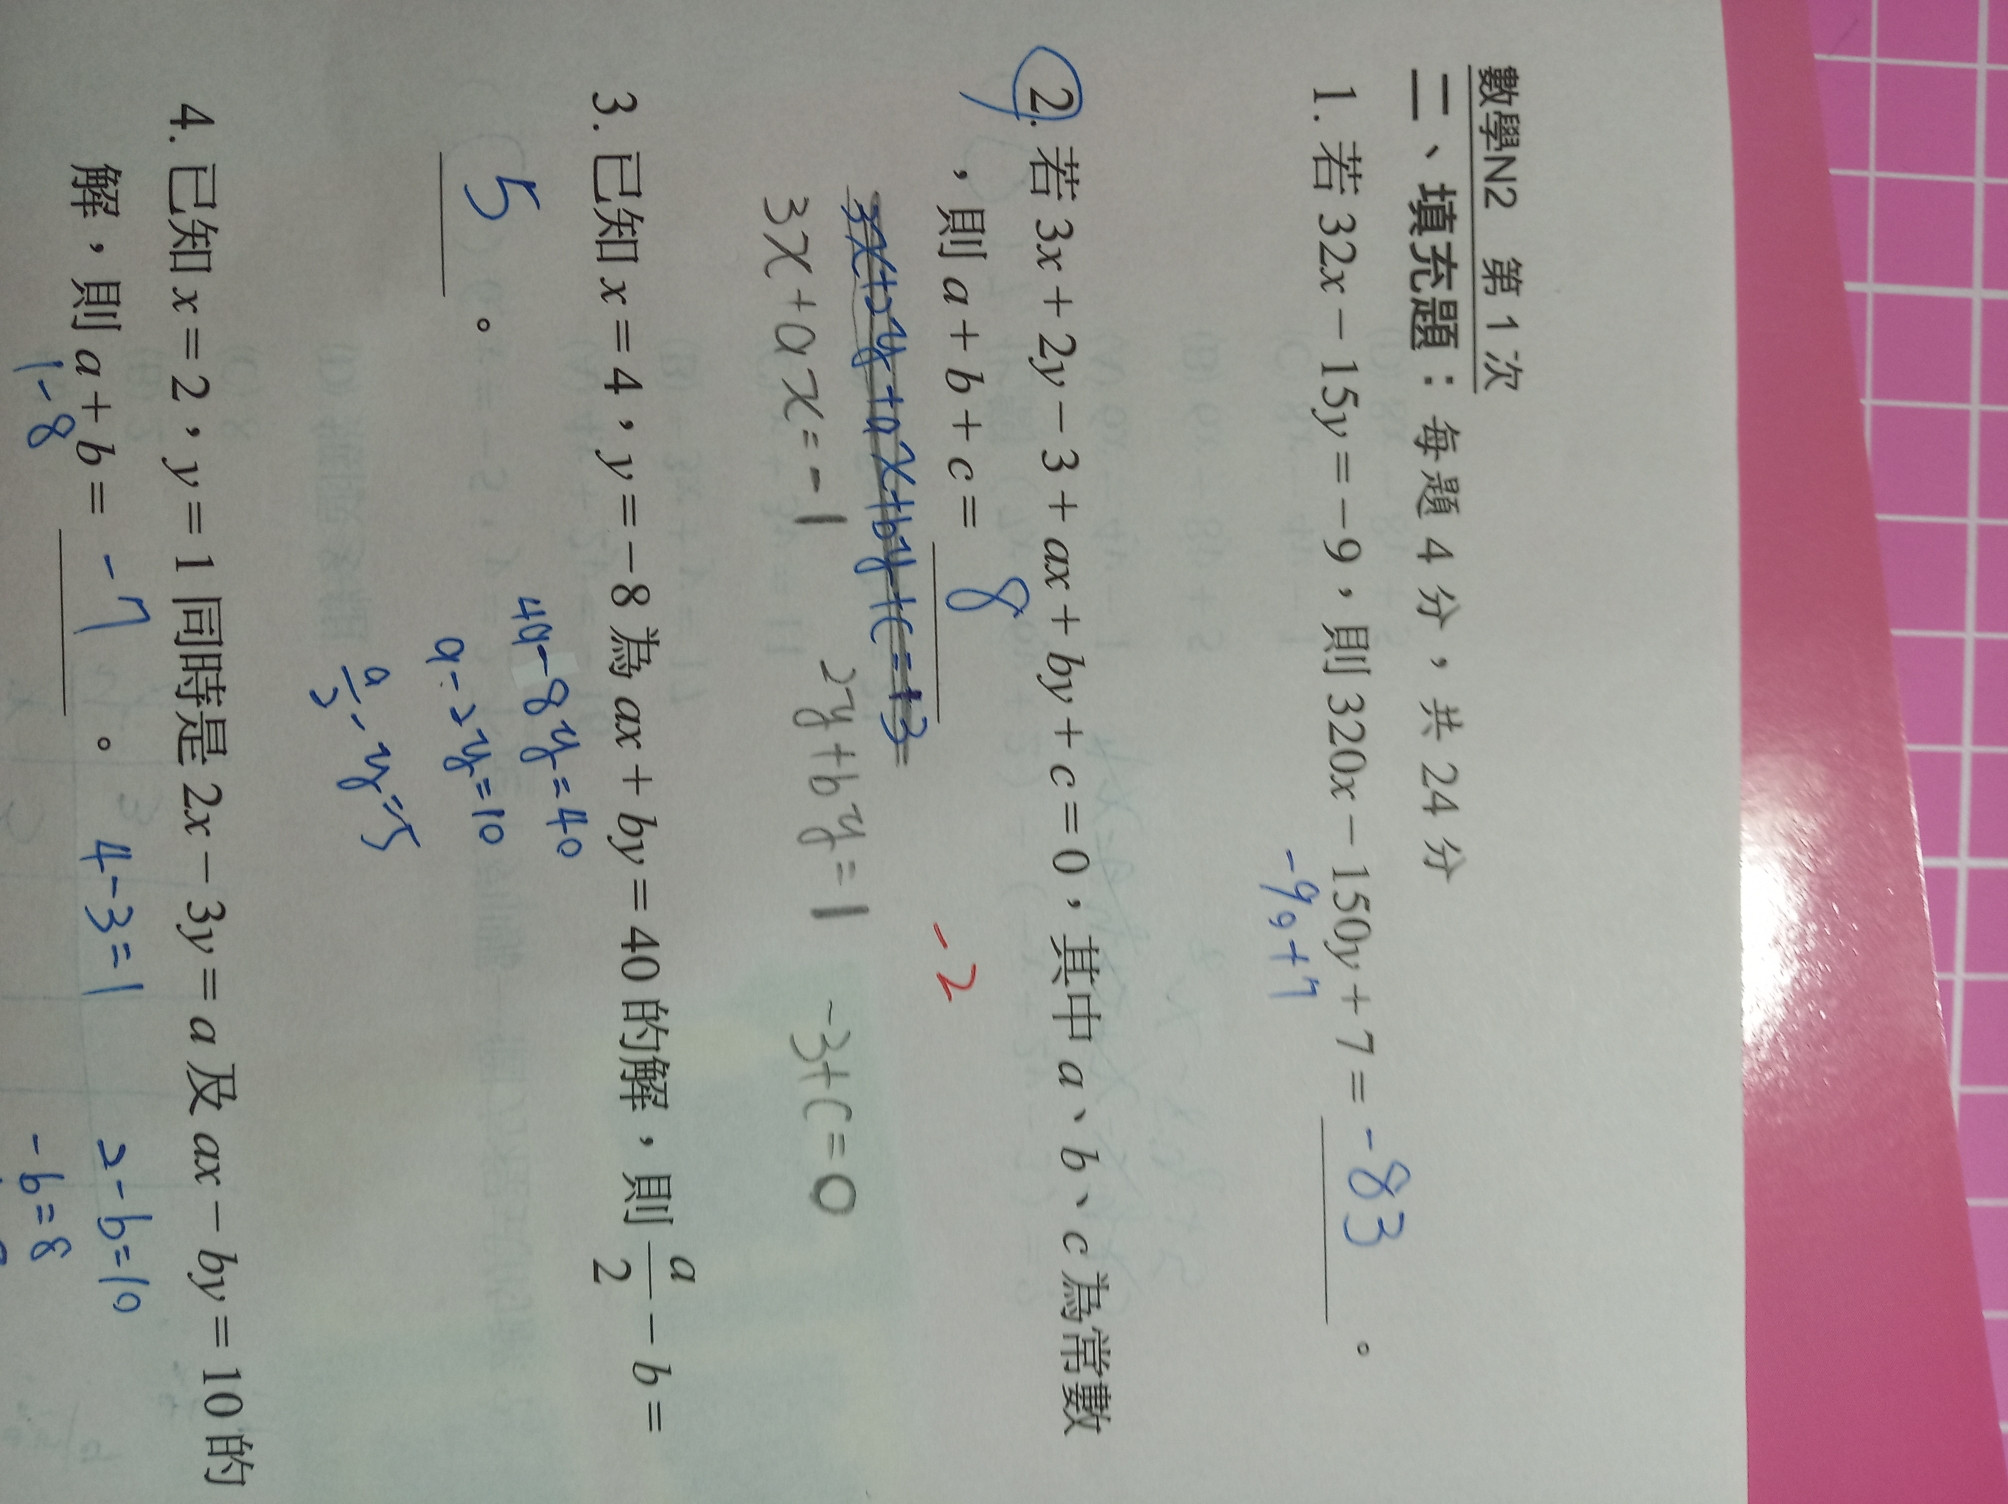 數學N2 第1次
二、填充題：每題 4 分，共 24 分
1. 若 32x − 15y = −9，則 320x − 150y + 7 = -83 。
-90+7
2. 若 3x + 2y − 3 + ax + by + c = 0，其中 a、b、c 為常數
，則 a + b + c = 8
-2
3x+2y+ax+by+c=+3
3x+ax=-1 2y+by=1 -3+c=0
3. 已知 x = 4，y = −8 為 ax + by = 40 的解，則 a/2 − b =
5 。
4a-8y=40
a-2y=10
a/2-y=5
4. 已知 x = 2，y = 1 同時是 2x − 3y = a 及 ax − by = 10 的
解，則 a + b = -7 。 4-3=1 2-b=10
1-8 -b=8